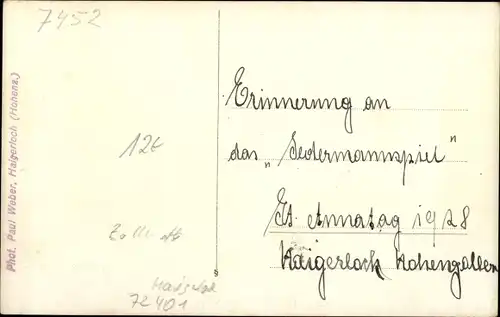 7452
Erinnerung an
das „Jedermannspiel"
St. Annatag 1928
Haigerloch Hohenzollern
12€
72401
Phot. Paul Weber, Haigerloch (Hohenz.)